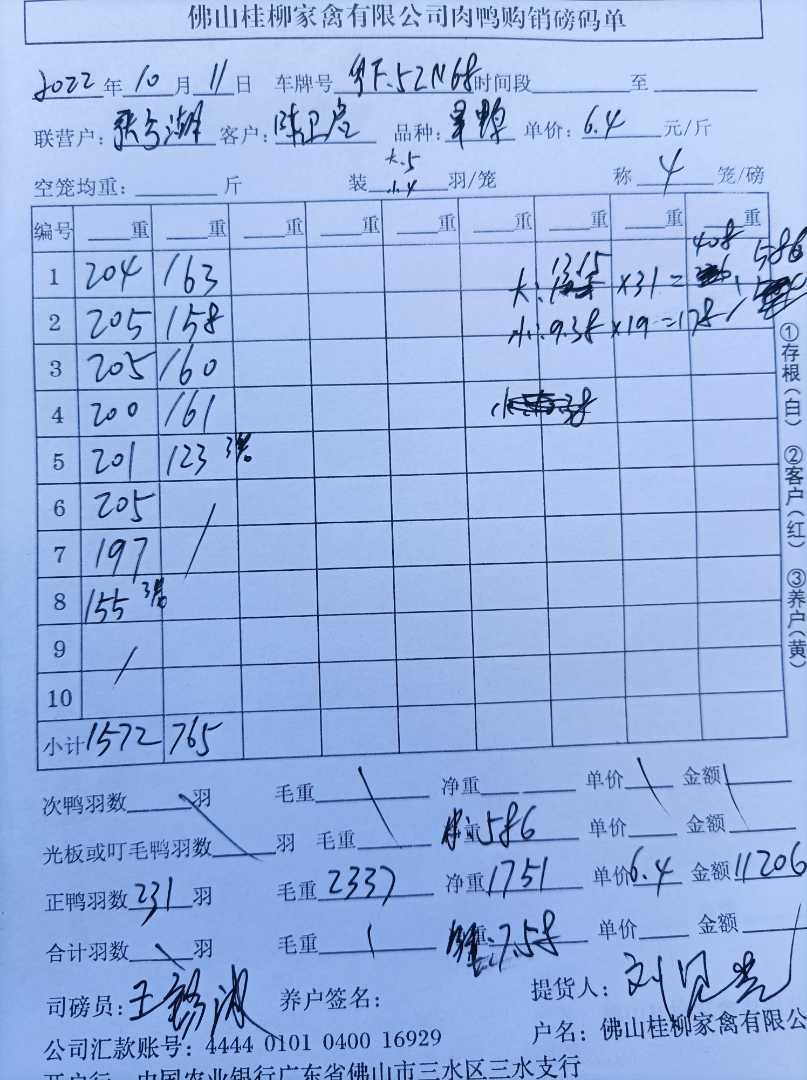 佛山桂柳家禽有限公司肉鸭购销磅码单
2022年10月11日 车牌号 粤F.52N68 时间段 至
联营户: 客户: 陈卫 品种: 单价: 6.4 元/斤
空笼均重: 斤 装 大.5 小.4 羽/笼 称 4 笼/磅
编号 重 重 重 重 重 重 重 重 重
1 204 163 大: 13.15 ×31= 408 586
2 205 158 小: 9.38×19=178
3 205 160
4 200 161
5 201 123 3笼
6 205
7 197
8 155 3笼
9
10
小计 1572 765
次鸭羽数 羽 毛重 净重 单价 金额
光板或叮毛鸭羽数 羽 毛重 重 586 单价 金额
正鸭羽数 231 羽 毛重 2337 净重 1751 单价 6.4 金额 11206
合计羽数 羽 毛重 重 7.58 单价 金额
司磅员: 王 养户签名: 提货人: 刘
公司汇款账号: 4444 0101 0400 16929 户名: 佛山桂柳家禽有限公
开户行: 中国农业银行广东省佛山市三水区三水支行
①存根(白) ②客户(红) ③养户(黄)